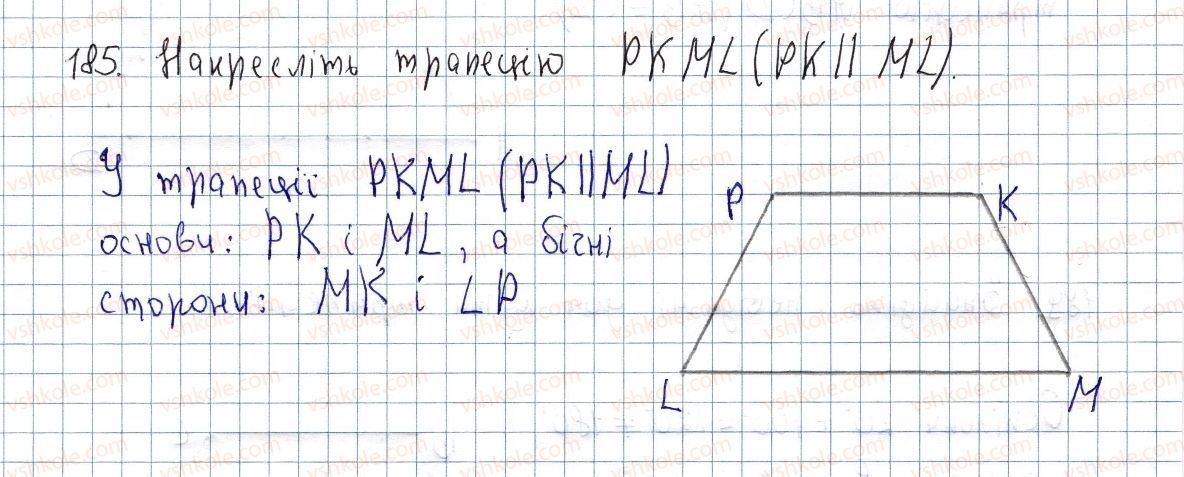 185. Накресліть трапецію PKML (PK || ML).
У трапеції PKML (PK || ML)
основи: PK і ML, а бічні
сторони: MK і LP
P
K
L
M
vshkole.com